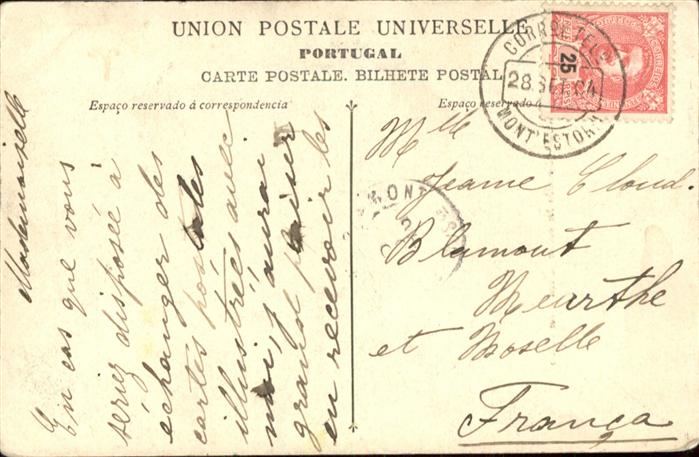 UNION POSTALE UNIVERSELLE
PORTUGAL
CARTE POSTALE. BILHETE POSTAL
Espaço reservado á correspondencia
Espaço reservado
CORREIO E TELº
28 SET 04
MONT'ESTORIL
CORREIOS
25
REIS
MONT
Mademoiselle
En cas que vous
seriez disposée à
échanger des
cartes postales
illustrées avec
moi, j'aurai
grand plaisir
en recevoir les
Mlle
Jeanne Cloud.
Blamont
Meurthe
et Moselle
França